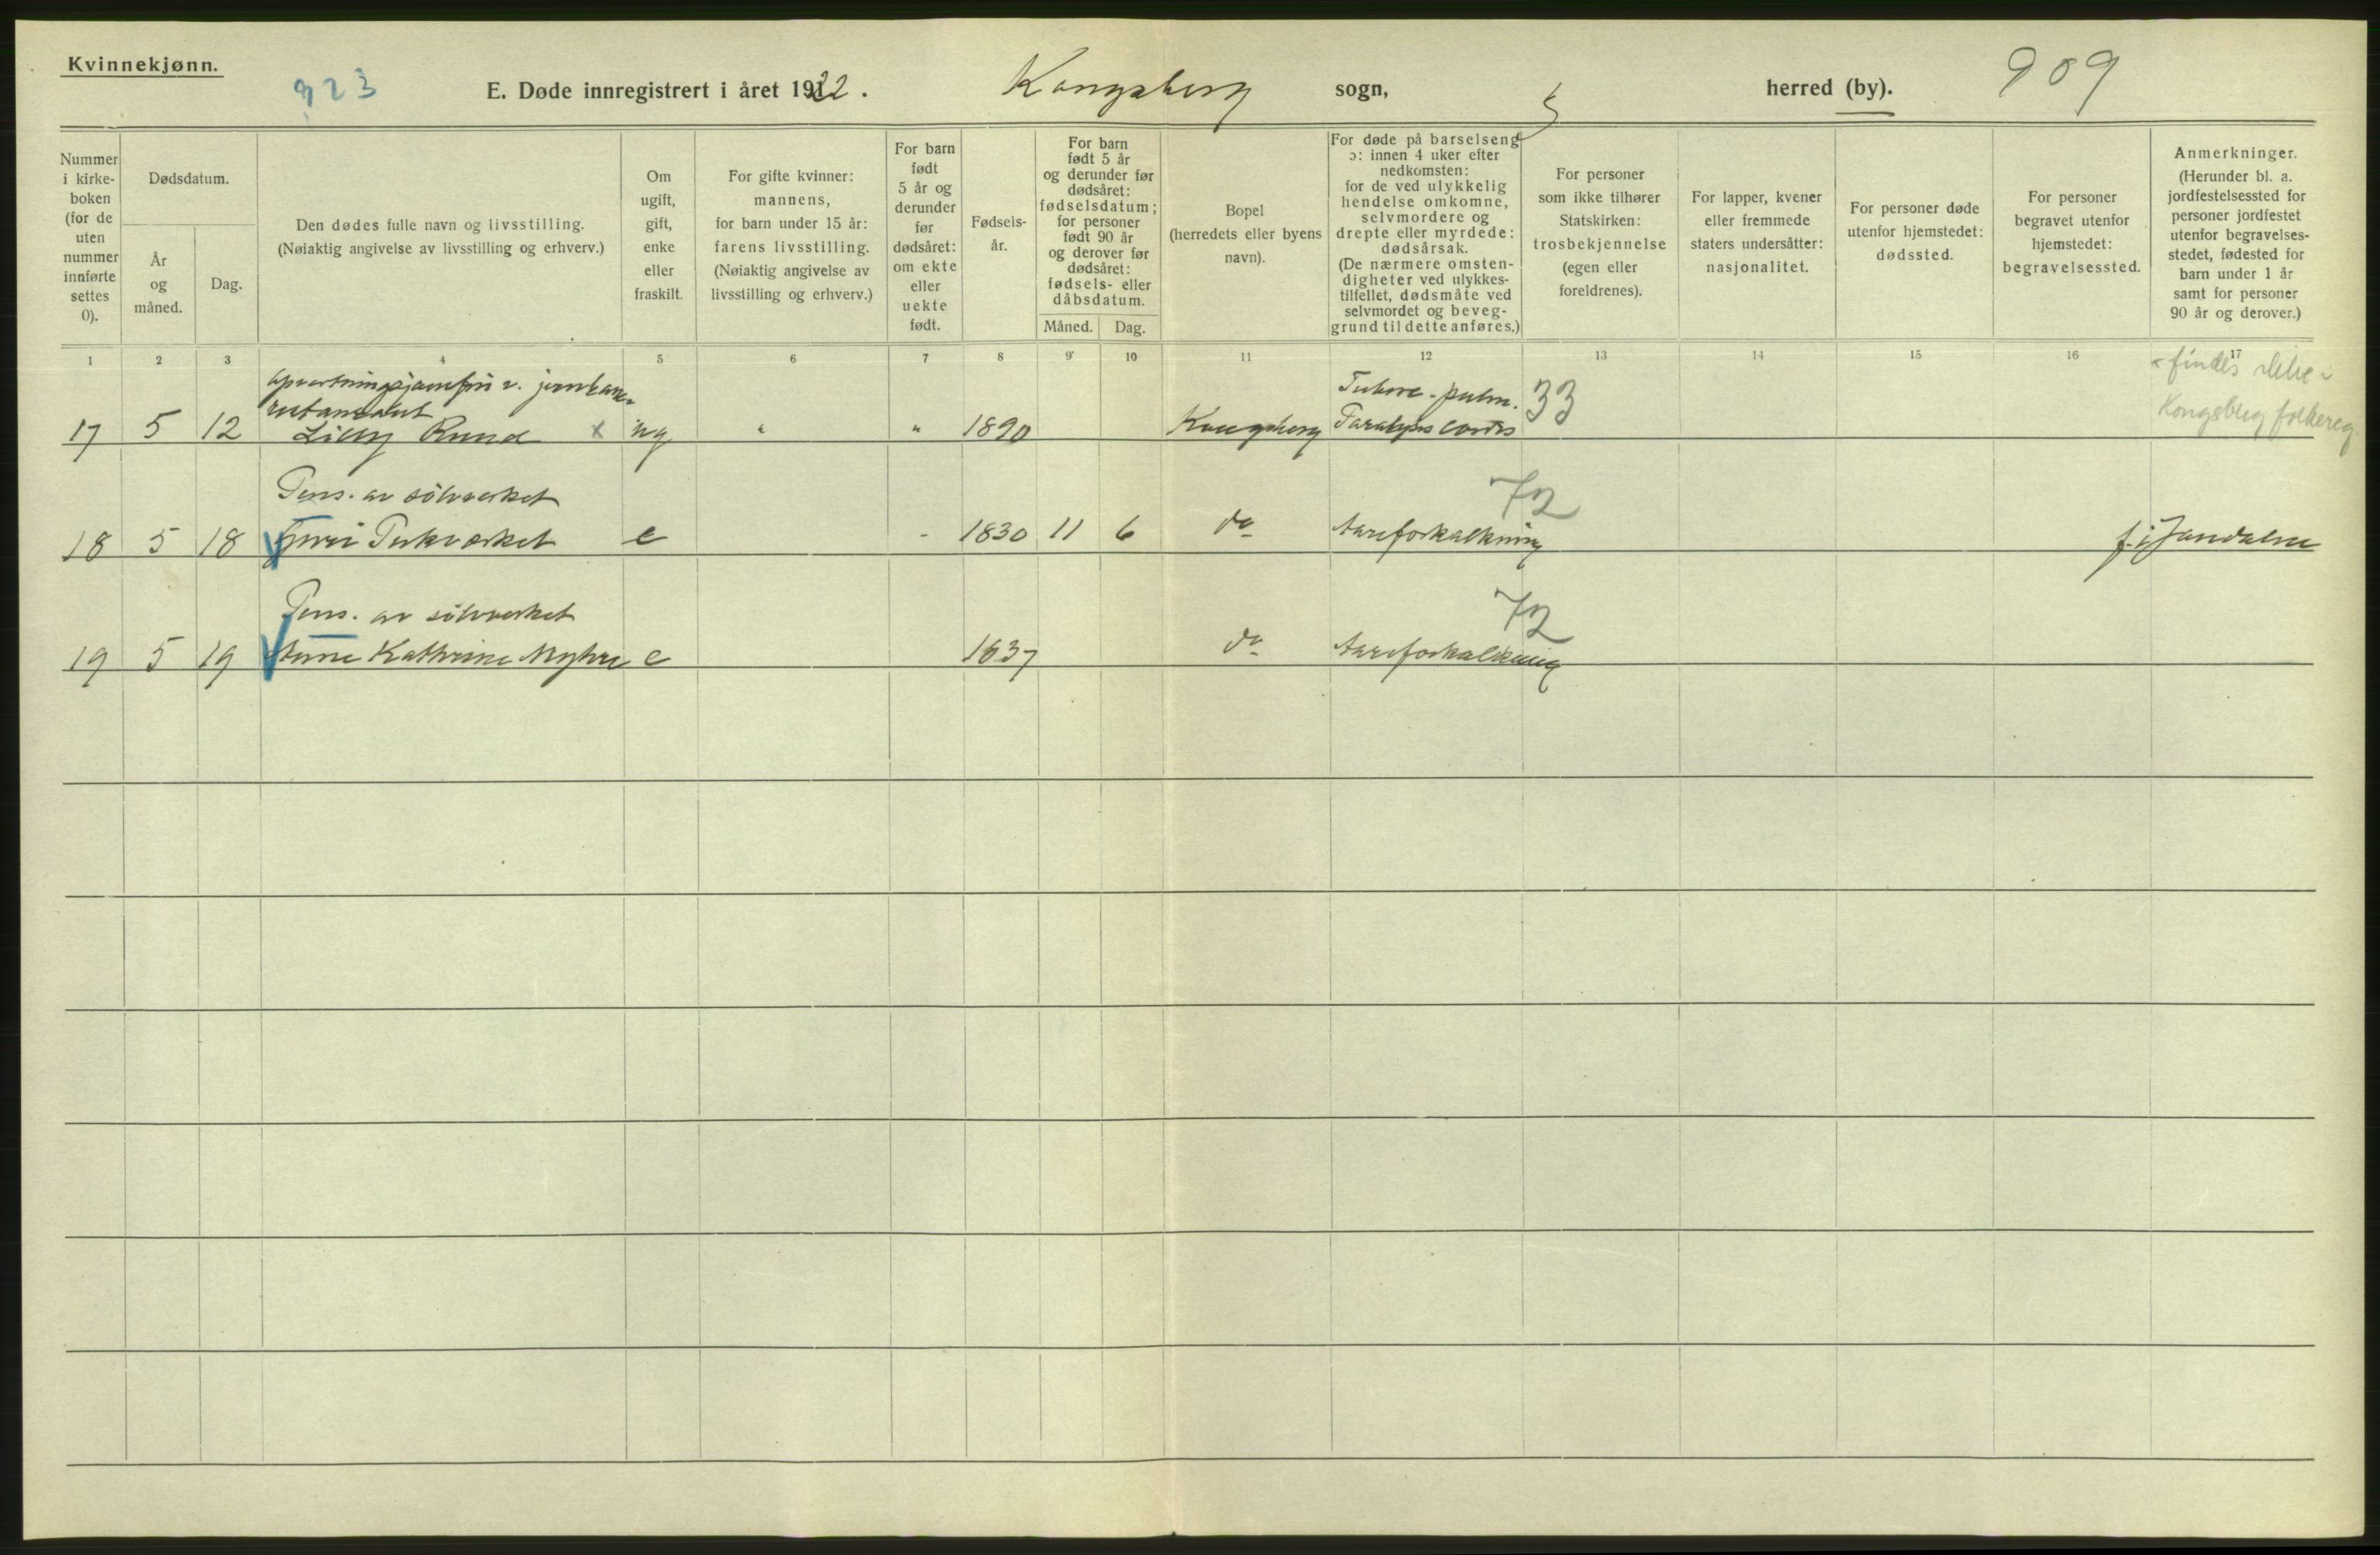 Kvinnekjønn.
923
E. Døde innregistrert i året 1922. Kongsberg sogn, herred (by). 909
Nummer i kirkeboken (for de uten nummer innførte settes 0).
Dødsdatum.
År og måned.
Dag.
Den dødes fulle navn og livsstilling.
(Nøiaktig angivelse av livsstilling og erhverv.)
Om ugift, gift, enke eller fraskilt.
For gifte kvinner: mannens, for barn under 15 år: farens livsstilling. (Nøiaktig angivelse av livsstilling og erhverv.)
For barn født 5 år og derunder før dødsåret: om ekte eller uekte født.
Fødselsår.
For barn født 5 år og derunder før dødsåret: fødselsdatum; for personer født 90 år og derover før dødsåret: fødsels- eller dåbsdatum.
Måned. Dag.
Bopel (herredets eller byens navn).
For døde på barselseng ɔ: innen 4 uker efter nedkomsten: for de ved ulykkelig hendelse omkomne, selvmordere og drepte eller myrdede: dødsårsak. (De nærmere omstendigheter ved ulykkestilfellet, dødsmåte ved selvmordet og beveggrund til dette anføres.)
For personer som ikke tilhører Statskirken: trosbekjennelse (egen eller foreldrenes).
For lapper, kvener eller fremmede staters undersåtter: nasjonalitet.
For personer døde utenfor hjemstedet: dødssted.
For personer begravet utenfor hjemstedet: begravelsessted.
Anmerkninger. (Herunder bl. a. jordfestelsessted for personer jordfestet utenfor begravelsesstedet, fødested for barn under 1 år samt for personer 90 år og derover.)
1 2 3 4 5 6 7 8 9 10 11 12 13 14 15 16 17
x findes ikke i
Kongsberg folkereg.
Tuberc. pulm. 33
17 5 12 Lilly Ruud x ug " " 1890 Kongsberg Paralysis cordis
Pens. av sølvverket 72
18 5 18 e - 1830 11 6 do Aareforkalkning f. i Sandsvær
Pens. av sølvverket 72
19 5 19 Anne Kathrine Myhre e 1837 do Aareforkalkning